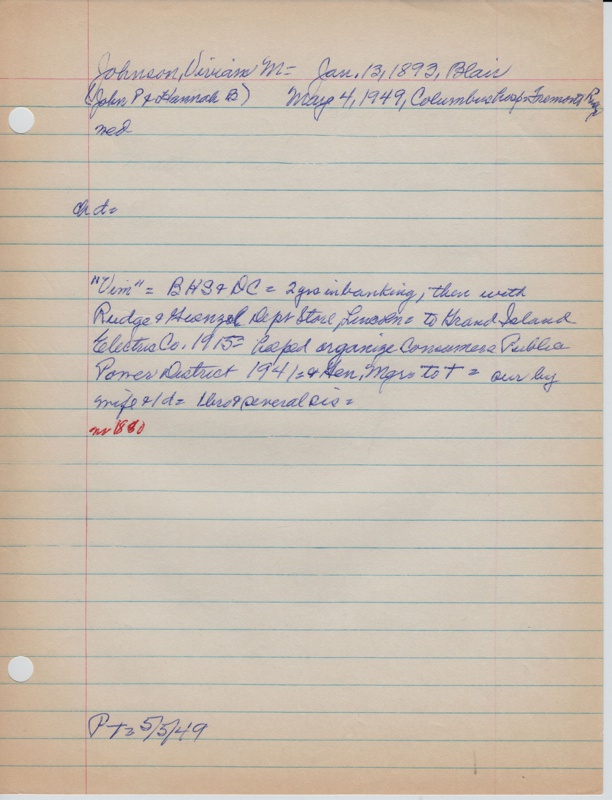 Johnson, Vivian M= Jan. 13, 1893, Blair
(John P & Hannah B) May 4, 1949, Columbus hosp= Fremont
med
ch d=
"Vim" = BHS & DC = 2 yrs in banking, then with
Rudge & Guenzel Dept Store, Lincoln= to Grand Island
Electric Co. 1915= helped organize Consumers Public
Power District 1941= & Gen, Mgr= to + = sur by
wife & 1d= 1 bro & several sis=
no 1880
P-T= 5/5/49